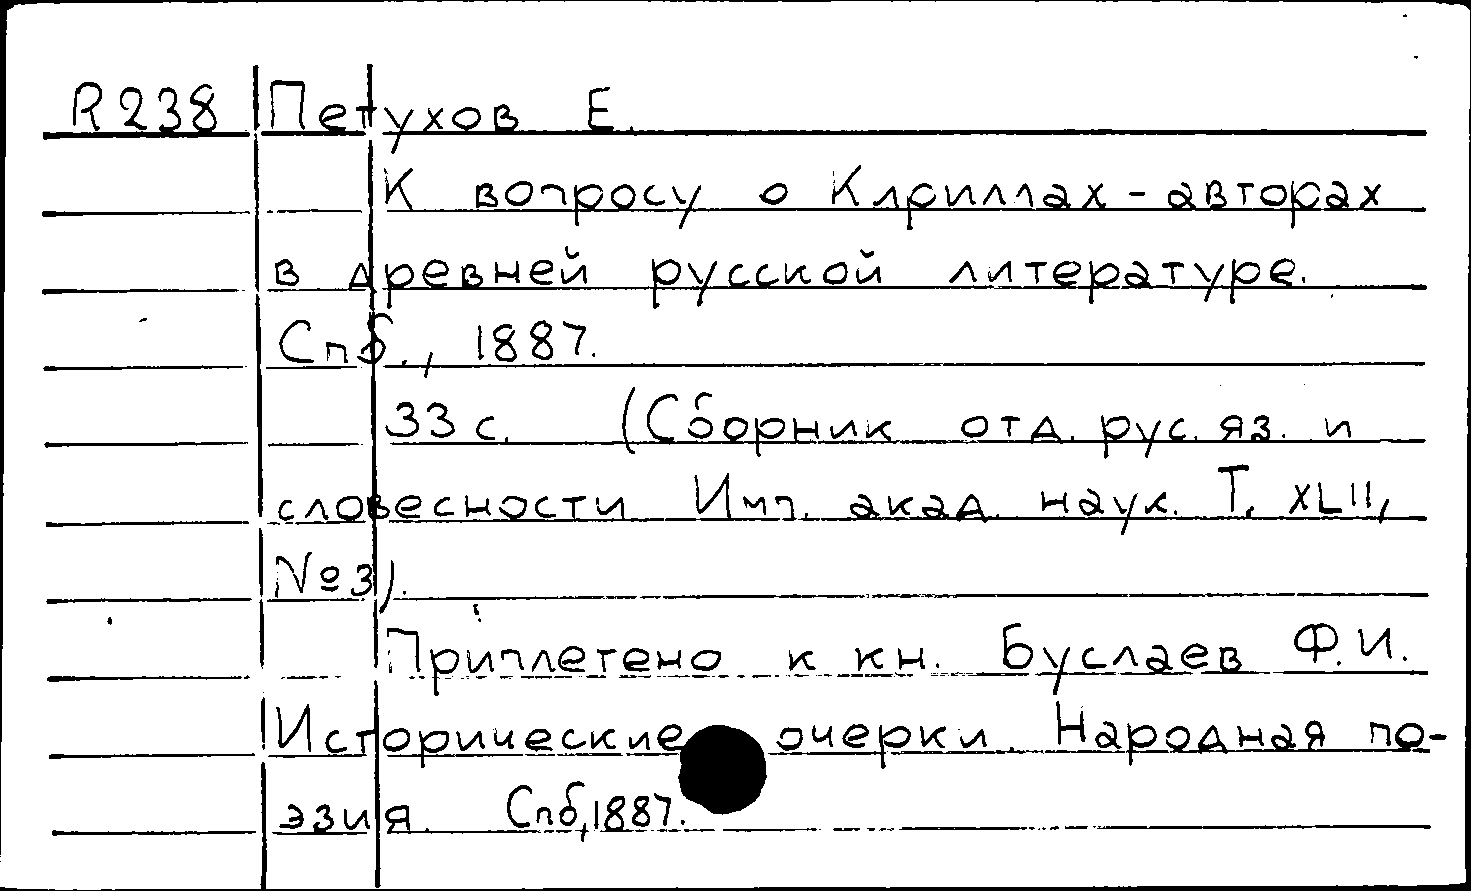 R238 Петухов Е.
К вопросу о Кириллах-авторах
в древней русской литературе.
Спб., 1887.
33 с. (Сборник отд. рус. яз. и
словесности Имп. акад. наук. Т. XLII,
№3).
Приплетено к кн. Буслаев Ф.И.
Исторические очерки. Народная по-
эзия. Спб, 1887.